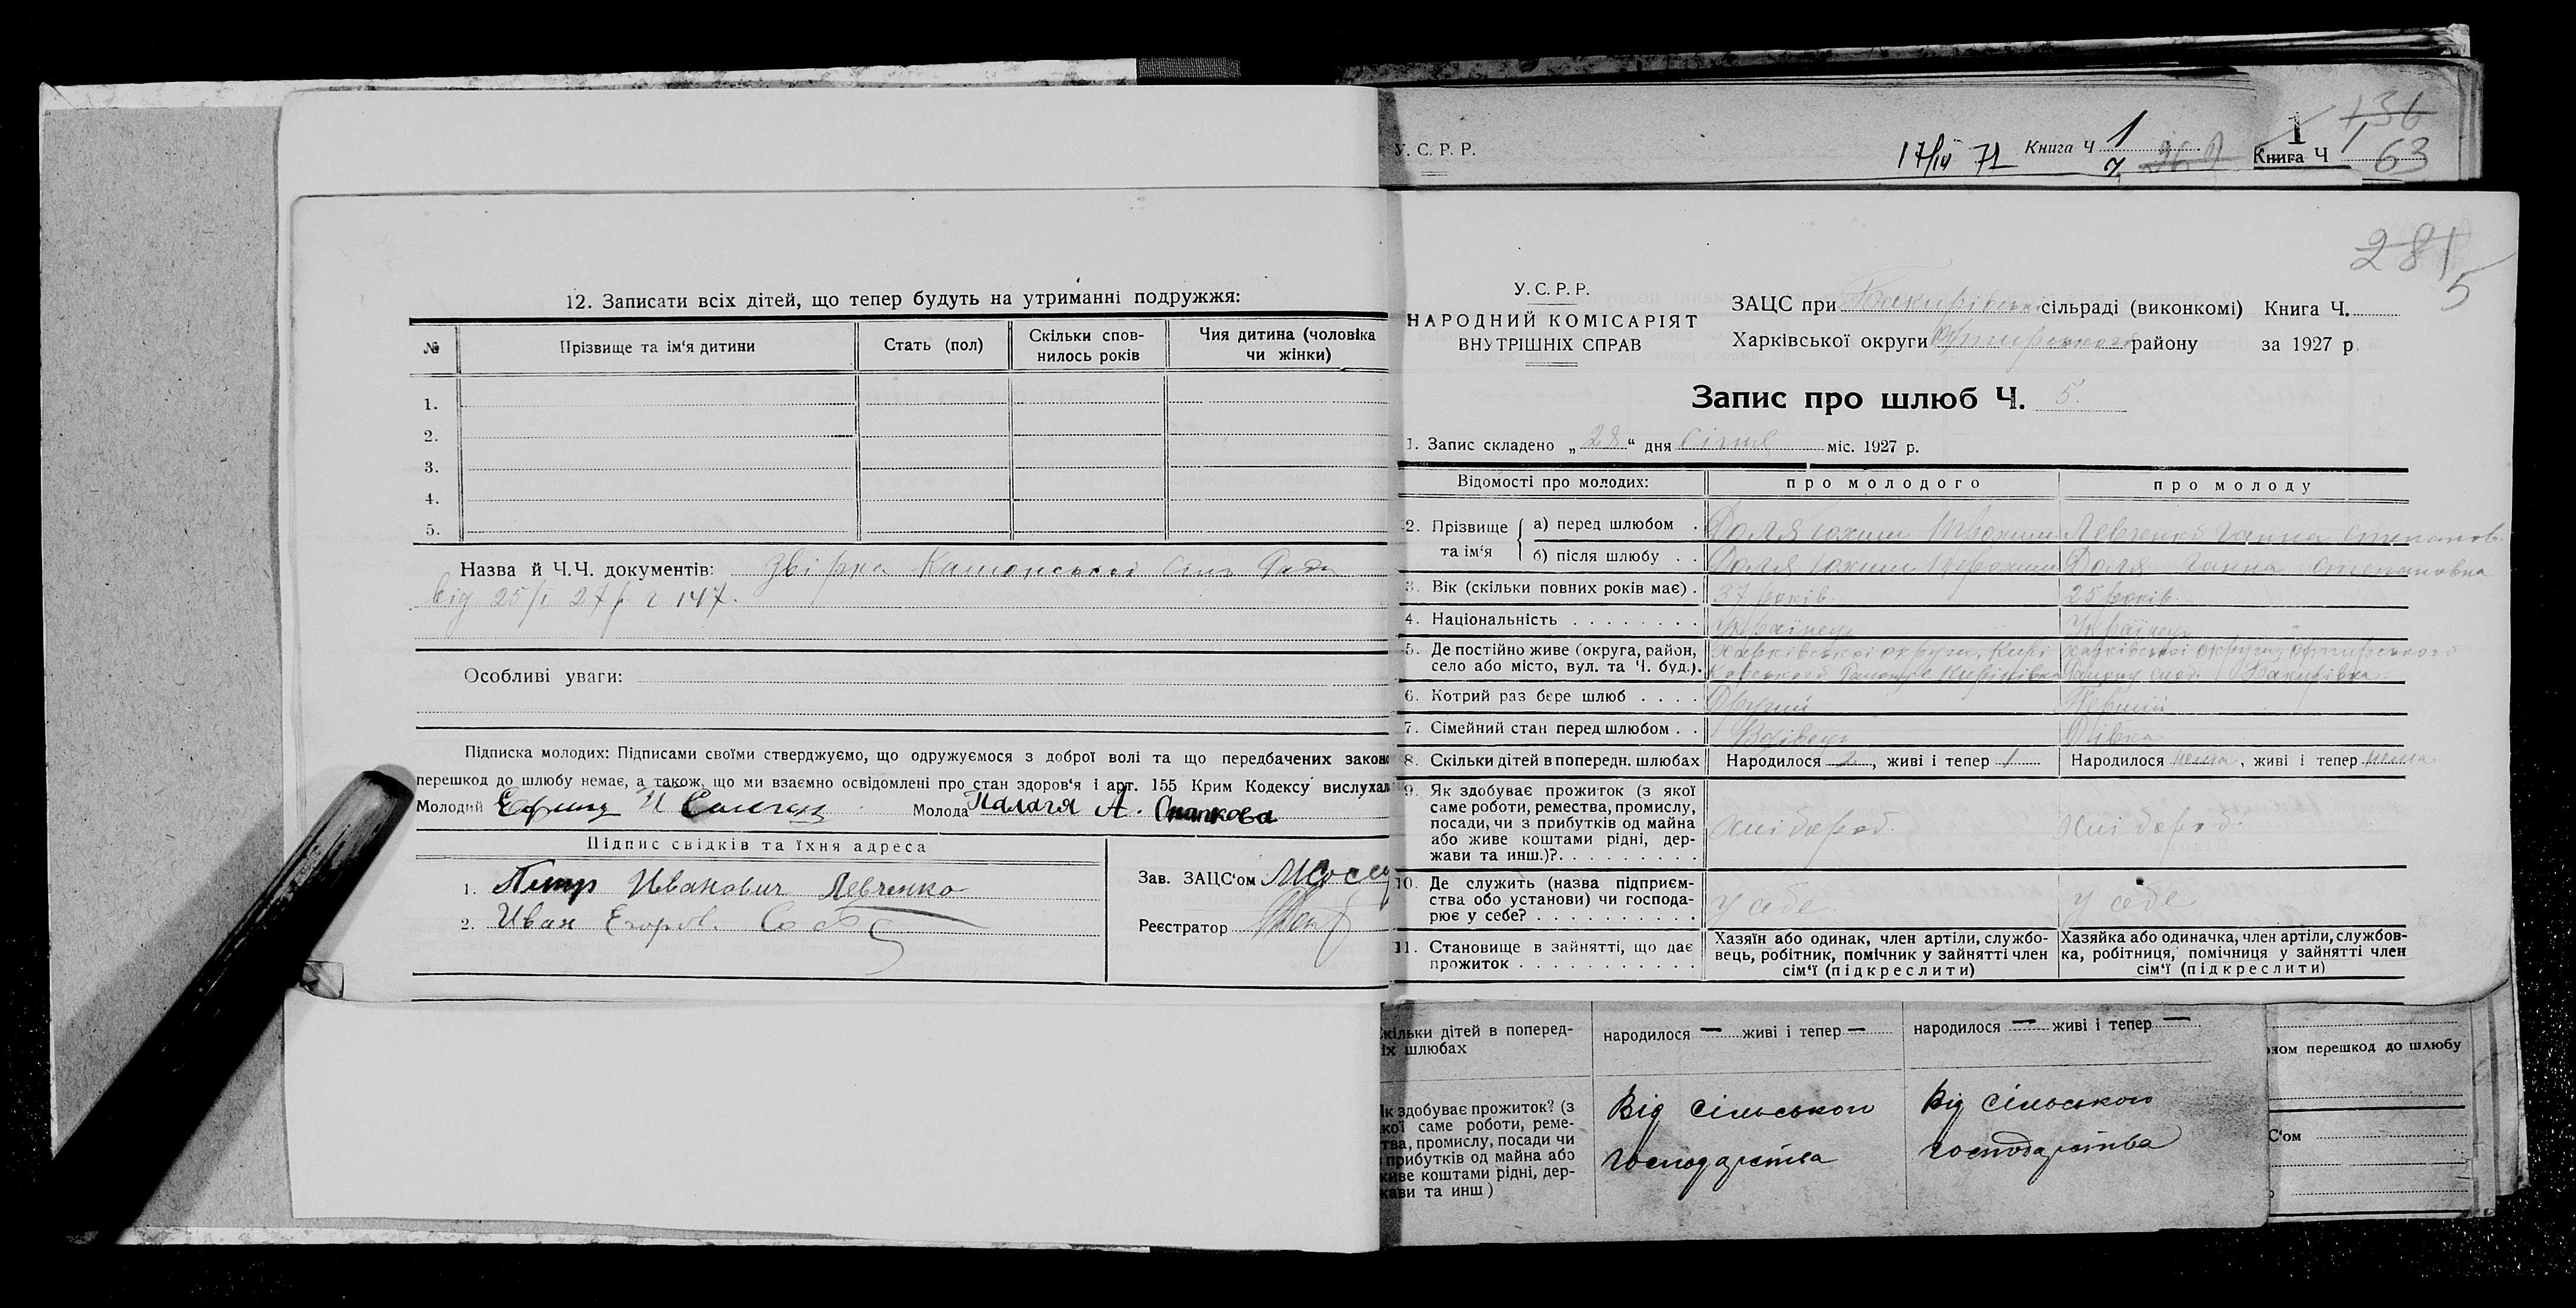 12. Записати всіх дітей, що тепер будуть на утриманні подружжя:
№ Прізвище та ім'я дитини Стать (пол) Скільки спов- нилось років Чия дитина (чоловіка чи жінки)
1.
2.
3.
4.
5.
Назва й Ч.Ч. документів: Звірка Сіль Ради
від 25/I 27 р ч 147.
Особливі уваги:
Підписка молодих: Підписами своїми стверджуємо, що одружуємося з доброї волі та що передбачених законо
перешкод до шлюбу немає, а також, що ми взаємно освідомлені про стан здоров'я і арт. 155 Крим Кодексу вислухал
Молодий Молода Палагя А.
Підпис свідків та їхня адреса
1. Петр Иванович Левченко
2. Иван Егоров.
Зав. ЗАЦС'ом
Реєстратор
У. С. Р. Р.
17/IV 71 Книга Ч 1
Книга Ч 1 136
63
281
5
У. С. Р. Р.
НАРОДНИЙ КОМІСАРІЯТ
ВНУТРІШНІХ СПРАВ
ЗАЦС при Бакирівськ сільраді (виконкомі) Книга Ч.
Харківської округи Охтирського району за 1927 р.
Запис про шлюб Ч. 5.
1. Запис складено „28“ дня Січня міс. 1927 р.
Відомості про молодих: про молодого про молоду
2. Прізвище та ім'я
а) перед шлюбом . Доля Юхим Трохим Левченко Ганна Степанов.
б) після шлюбу . . Доля Юхим Трохим Доля Ганна Степановна
3. Вік (скільки повних років має) . 37 років 25 років.
4. Національність . . . . . . . . Українець Українець
5. Де постійно живе (округа, район, Харківської округи, Кирі Харківської округи, Охтирського
село або місто, вул. та Ч. буд.). ковського Району с Кириківка Району слоб. Бакирівка
6. Котрий раз бере шлюб . . . . Другий Перший
7. Сімейний стан перед шлюбом . . Вдівець Дівка
8. Скільки дітей в попередн. шлюбах Народилося 2, живі і тепер 1 Народилося нема, живі і тепер нема
9. Як здобуває прожиток (з якої
саме роботи, ремества, промислу,
посади, чи з прибутків од майна
або живе коштами рідні, дер-
жави та инш.)?. . . . . . . . . Хлібороб. Хлібороб.
10. Де служить (назва підприєм-
ства обо установи) чи господа-
рює у себе? . . . . . . . . . . у себе у себе
11. Становище в зайнятті, що дає
прожиток . . . . . . . . . . .
Хазяїн або одинак, член артіли, службо-
вець, робітник, помічник у зайнятті член
сім'ї (підкреслити)
Хазяйка або одиначка, член артіли, службов-
ка, робітниця, помічниця у зайнятті член
сім'ї (підкреслити)
кільки дітей в поперед-
іх шлюбах
народилося — живі і тепер — народилося — живі і тепер —
як здобуває прожиток? (з
кої саме роботи, реме-
тва, промислу, посади чи
прибутків од майна або
живе коштами рідні, дер-
жави та инш)
Від сільського Від сільського
господарства господарства
ном перешкод до шлюбу
С'ом